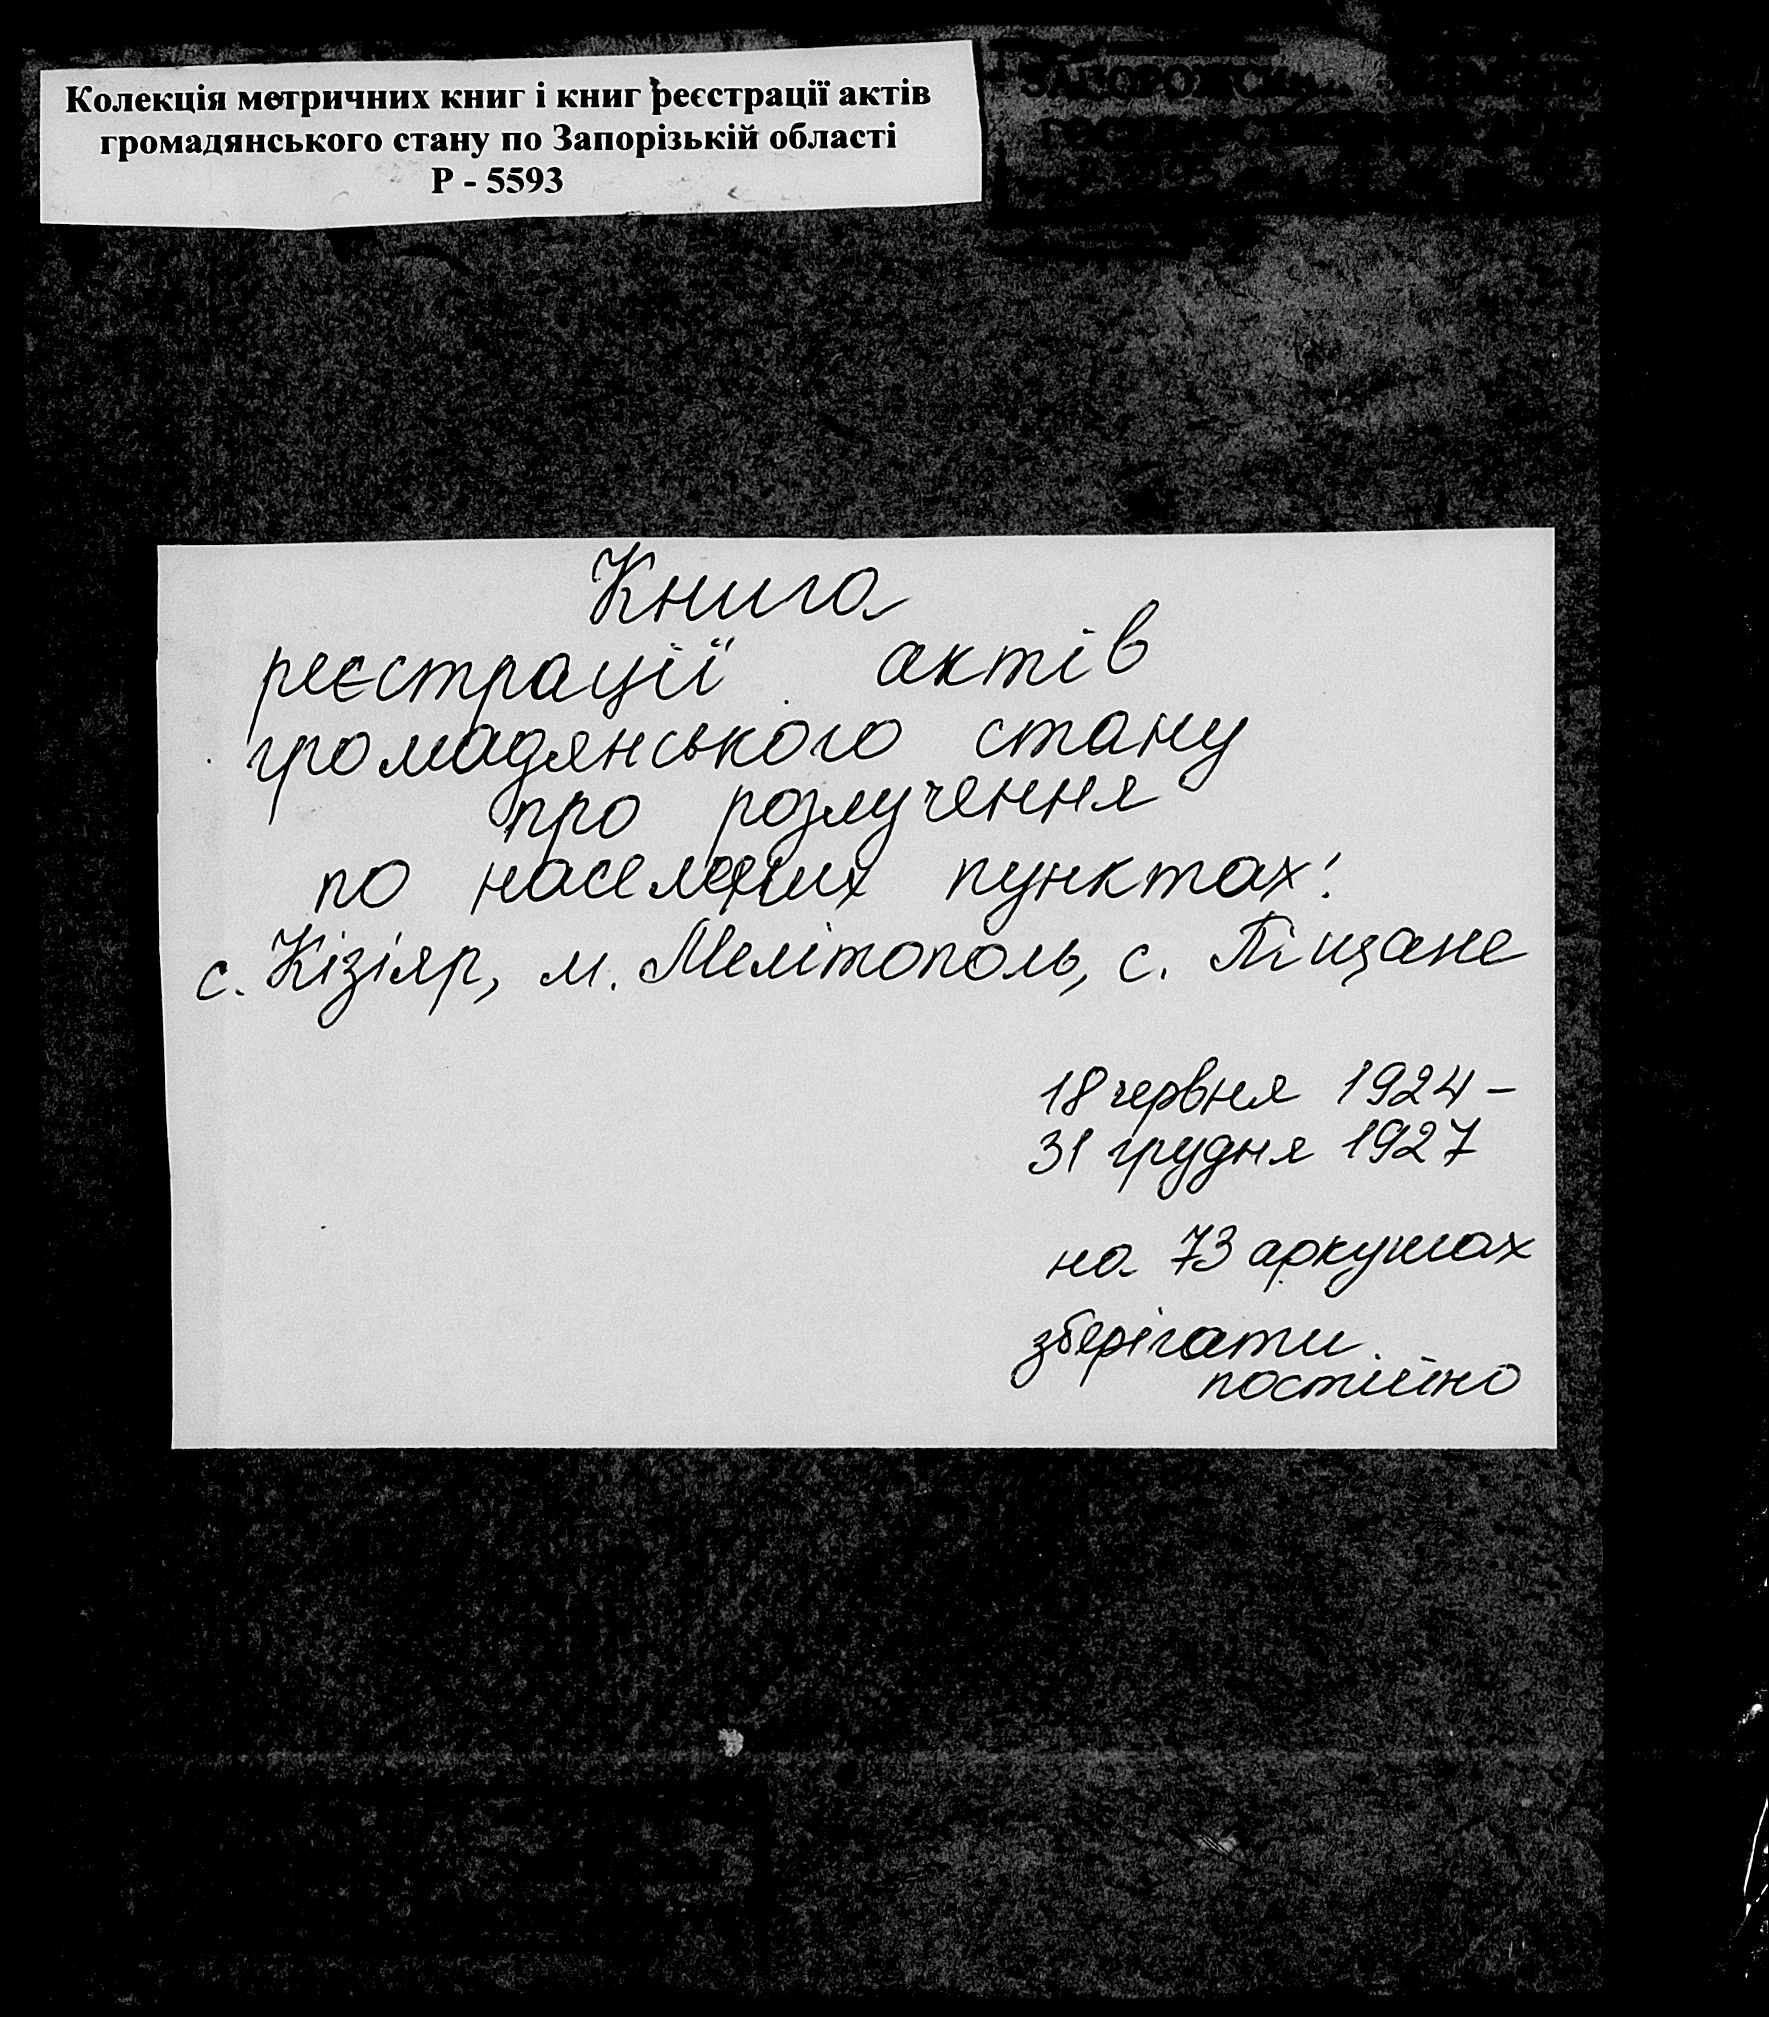 Колекція метричних книг і книг реєстрації актів
громадянського стану по Запорізькій області
Р - 5593
Книга
реєстрації актів
громадянського стану
про розлучення
по населених пунктах:
с. Кізіяр, м. Мелітополь, с. Піщане
18 червня 1924 –
31 грудня 1927
на 73 аркушах
зберігати
постійно